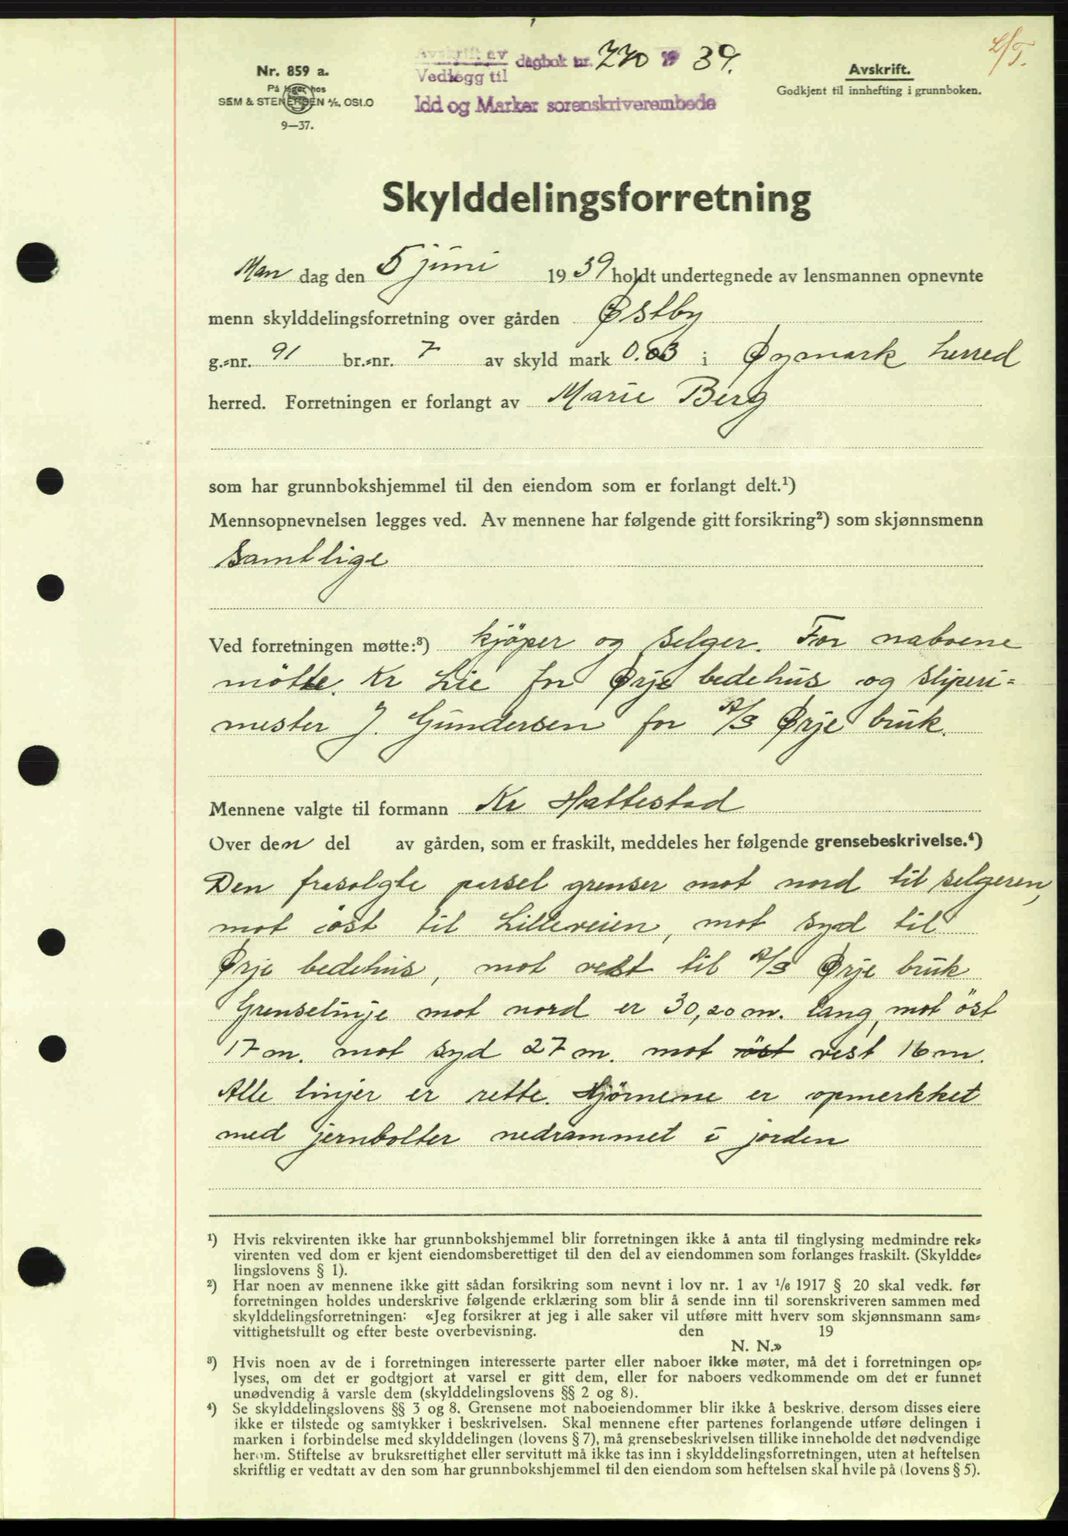 Avskrift av
Vedlegg til dagbok nr. 770 19 39.
Idd og Marker sorenskriverembede
Nr. 859 a.
På lager hos
SEM & STENERSEN A/S, OSLO
9—37.
Avskrift.
Godkjent til innhefting i grunnboken.
Skylddelingsforretning
Man dag den 5 juni 1939 holdt undertegnede av lensmannen opnevnte
menn skylddelingsforretning over gården Østby
g.-nr. 91 br.-nr. 7 av skyld mark 0.03 i Øymark herred
herred. Forretningen er forlangt av Marie Berg
som har grunnbokshjemmel til den eiendom som er forlangt delt.¹)
Mennsopnevnelsen legges ved. Av mennene har følgende gitt forsikring²) som skjønnsmenn
Samtlige
Ved forretningen møtte:³) kjöper og selger. For naboene
mötte. Kr Lie for Ørje bedehus og sliperi=
mester J. Gundersen for A/S Ørje bruk.
Mennene valgte til formann Kr Hattestad
Over den del av gården, som er fraskilt, meddeles her følgende grensebeskrivelse.⁴)
Den frasolgte parsel grenser mot nord til selgeren,
mot öst til Lilleveien, mot syd til
Ørje bedehus, mot vest til A/S Ørje bruk
Grenselinje mot nord er 30,20 m. lang, mot öst
17 m. mot syd 27 m. mot öst vest 16 m.
Alle linjer er rette. Hjörnene er opmerkket
med jernbolter nedrammet i jorden
¹) Hvis rekvirenten ikke har grunnbokshjemmel blir forretningen ikke å anta til tinglysing medmindre rek-
virenten ved dom er kjent eiendomsberettiget til den del av eiendommen som forlanges fraskilt. (Skyldde-
lingslovens § 1).
²) Har noen av mennene ikke gitt sådan forsikring som nevnt i lov nr. 1 av 1/6 1917 § 20 skal vedk. før
forretningen holdes underskrive følgende erklæring som blir å sende inn til sorenskriveren sammen med
skylddelingsforretningen: «Jeg forsikrer at jeg i alle saker vil utføre mitt hverv som skjønnsmann sam-
vittighetsfullt og efter beste overbevisning. den 19
N. N.»
³) Hvis noen av de i forretningen interesserte parter eller naboer ikke møter, må det i forretningen op-
lyses, om det er godtgjort at varsel er gitt dem, eller for naboers vedkommende om det er funnet
unødvendig å varsle dem (skylddelingslovens §§ 2 og 8).
⁴) Se skylddelingslovens §§ 3 og 8. Grensene mot naboeiendommer blir ikke å beskrive, dersom disses eiere
ikke er tilstede og samtykker i beskrivelsen. Skal mennene efter partenes forlangende utføre delingen i
marken i forbindelse med skylddelingen (lovens § 7), må grensebeskrivelsen tillike inneholde det nødvendige
herom. Stiftelse av bruksrettighet eller servitutt må ikke tas inn i skylddelingsforretningen, uten at heftelsen
skriftlig er vedtatt av den som har grunnbokshjemmel til den eiendom som heftelsen skal hvile på (lovens § 5).